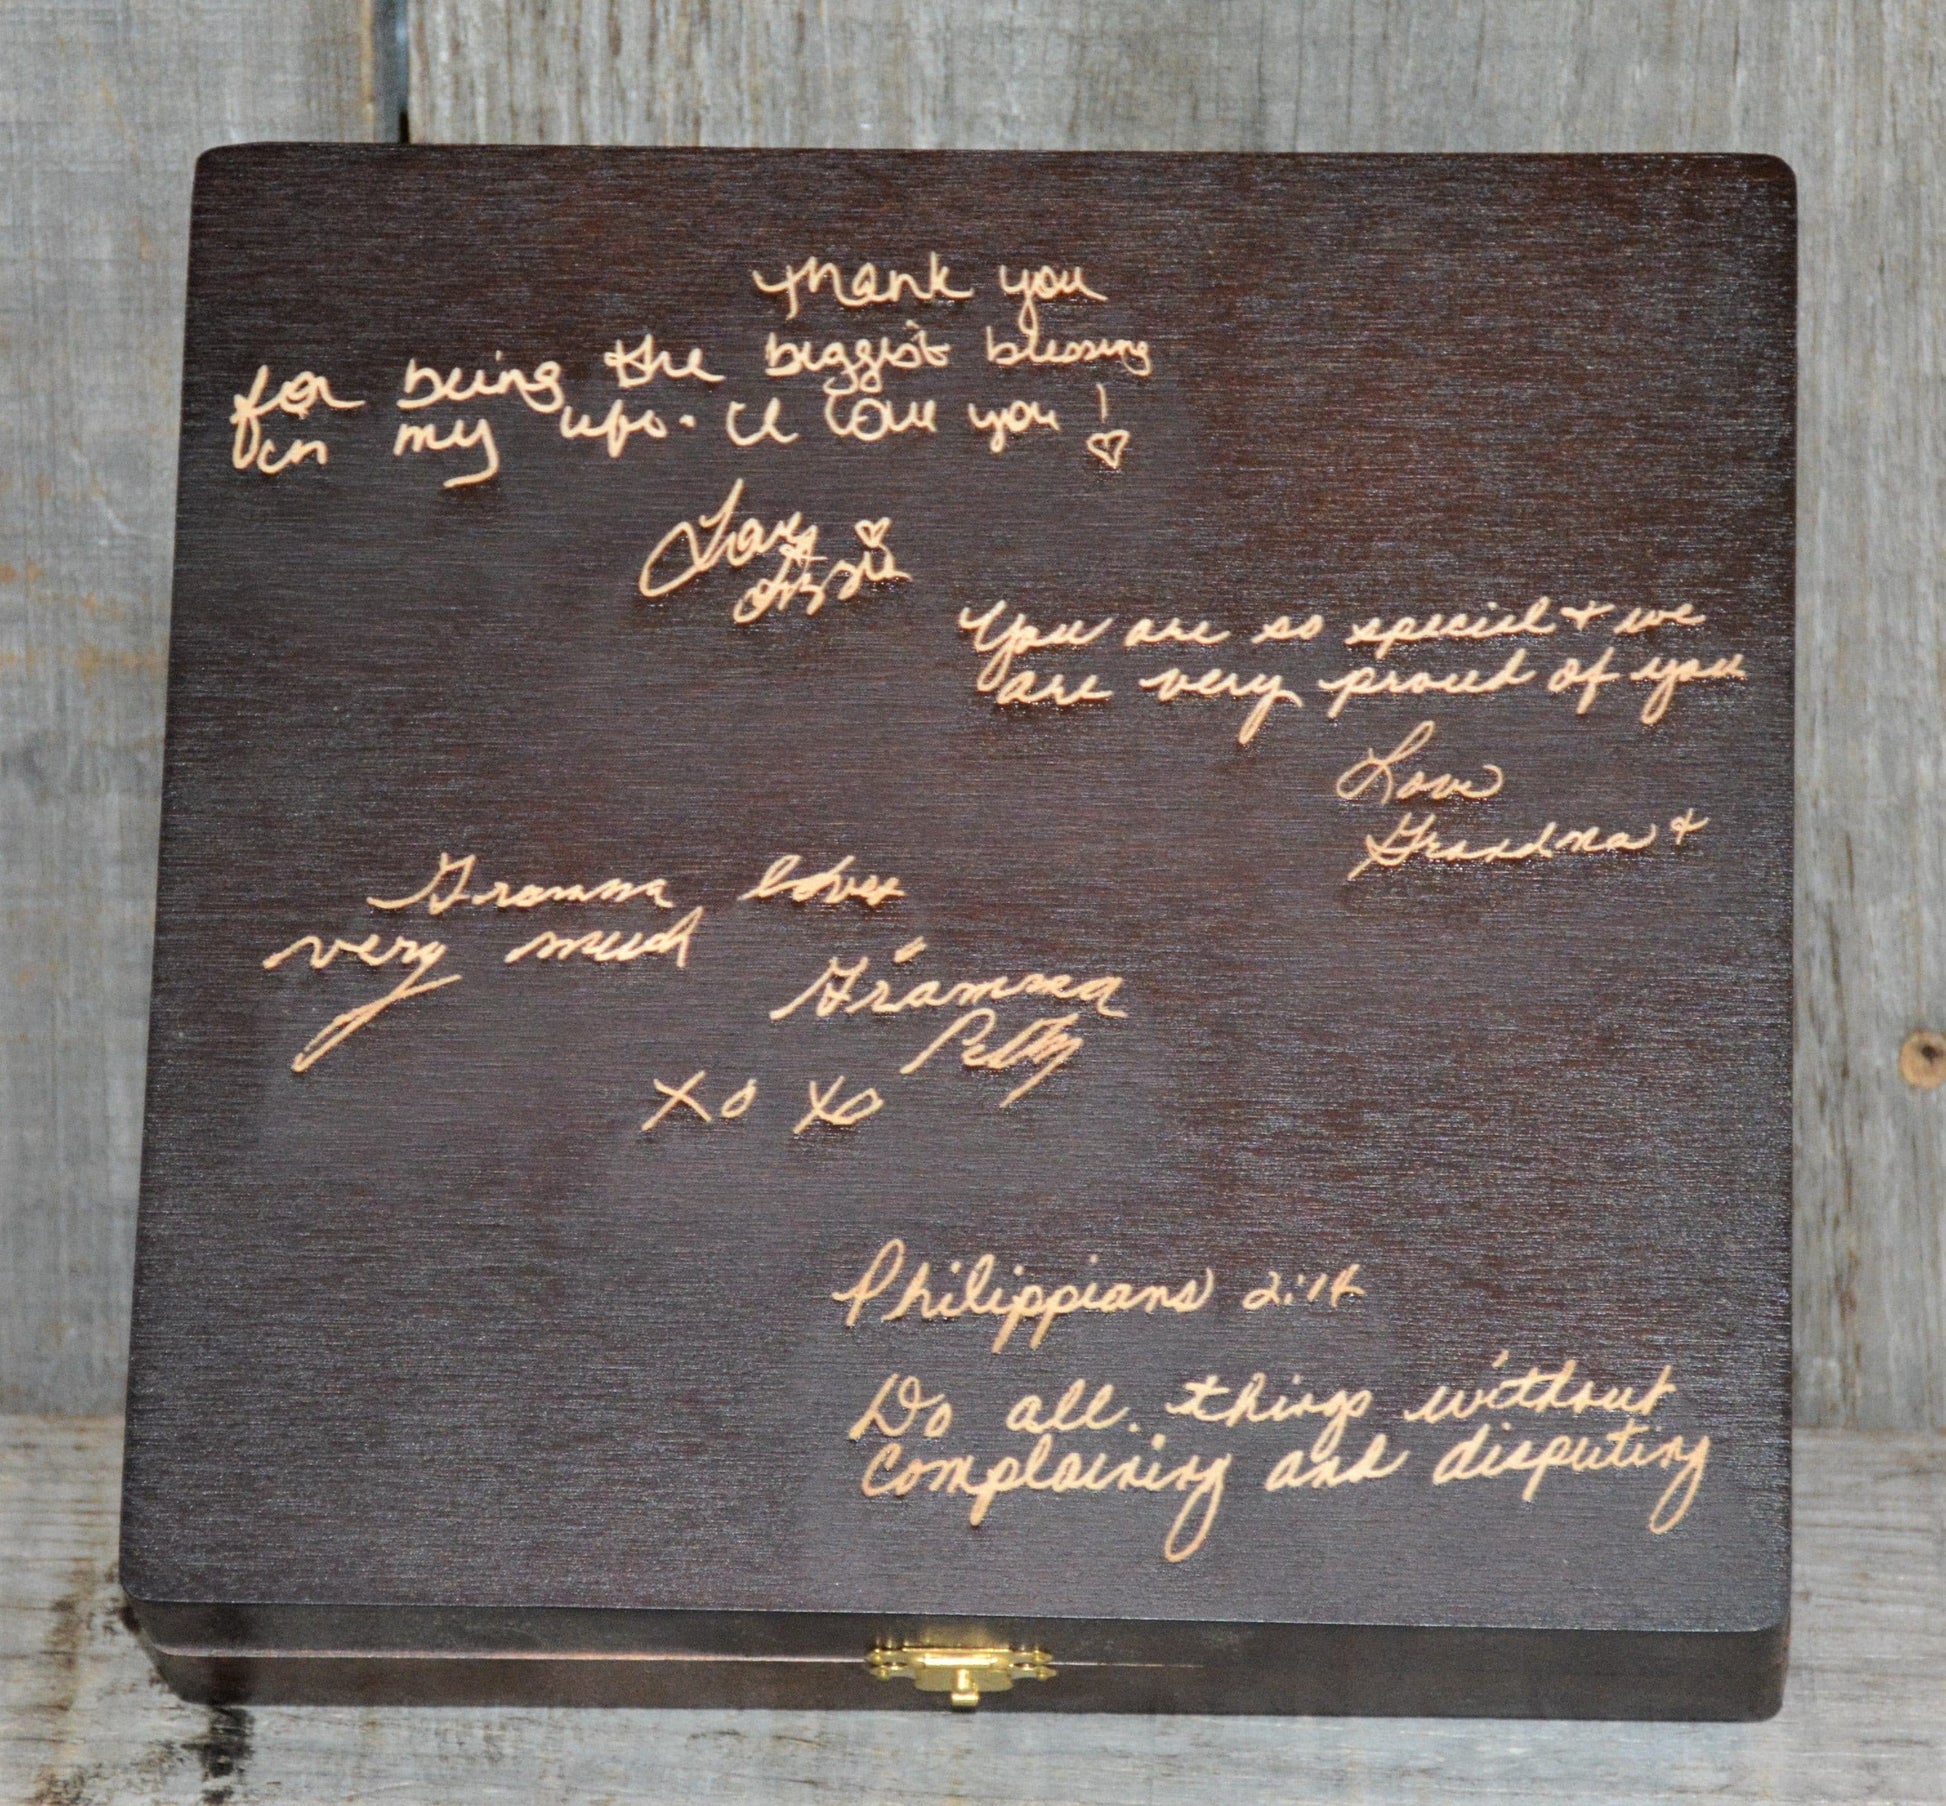 Thank you
for being the biggest blessing
in my life. I love you!
Love
Lizzie
You are so special + we
are very proud of you
Love
Grandma +
Gramma loves
very much
Gramma
xo xo
Philippians 2:14
Do all things without
complaining and disputing